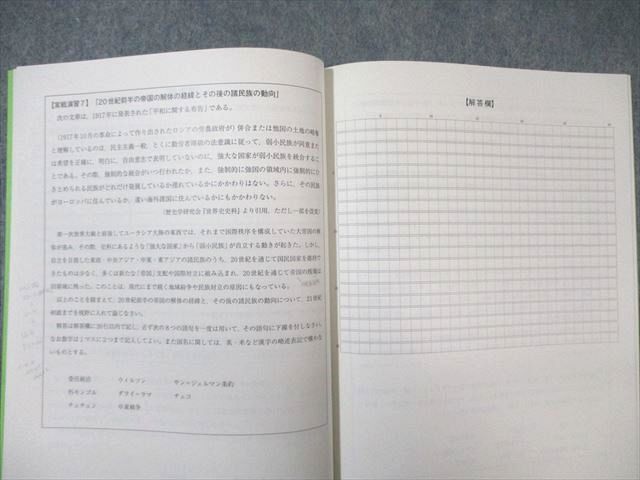 【実戦演習7】「20世紀前半の帝国の解体の経緯とその後の諸民族の動向」
次の文章は、1917年に発表された「平和に関する布告」である。
(1917年10月の革命によって作り出されたロシアの労農政府が) 併合または他国の土地の略奪
と理解しているのは、民主主義一般、とくに勤労者階級の法意識に従って、弱小民族が同意また
は希望を正確に、明白に、自由意志で表明していないのに、強大な国家が弱小民族を統合するこ
とである。その際、強制的な統合がいつ行われたか、また、強制的に強国の領域内に強制的にひ
きとめられる民族がどれだけ発展しているか遅れているかにかかわりはない。さらに、その民族
がヨーロッパに住んでいるか、遠い海外諸国に住んでいるかにもかかわりない。
(歴史学研究会『世界史史料』より引用、ただし一部を改変)
第一次世界大戦と前後してユーラシア大陸の東西では、それまで国際秩序を構成していた大帝国の解
体が進み、その際、史料にあるような「強大な国家」から「弱小民族」が自立する動きが起きた。しかし、
自立を目指した東欧・中央アジア・中東・東アジアの諸民族のうち、20世紀を通じて国民国家を維持で
きたものは少なく、多くは新たな「帝国」支配や国際対立に組み込まれ、20世紀を通じて帝国の残滓は
旧領域に残った。このことは、現代にまで続く地域紛争や民族対立の原因にもなっている。
以上のことを踏まえて、20世紀前半の帝国の解体の経緯と、その後の諸民族の動向について、21世紀
初頭までを視野に入れて論じなさい。
解答は解答欄に20行以内で記し、必ず次の8つの語句を一度は用いて、その語句に下線を付しなさい。
なお数字は1マスに2つまで記入してよい。また国名に関しては、英・米など漢字の略述表記で構わな
いものとする。
委任統治 ウィルソン サン=ジェルマン条約
外モンゴル ダライ=ラマ チェコ
チェチェン 中東戦争
【解答欄】